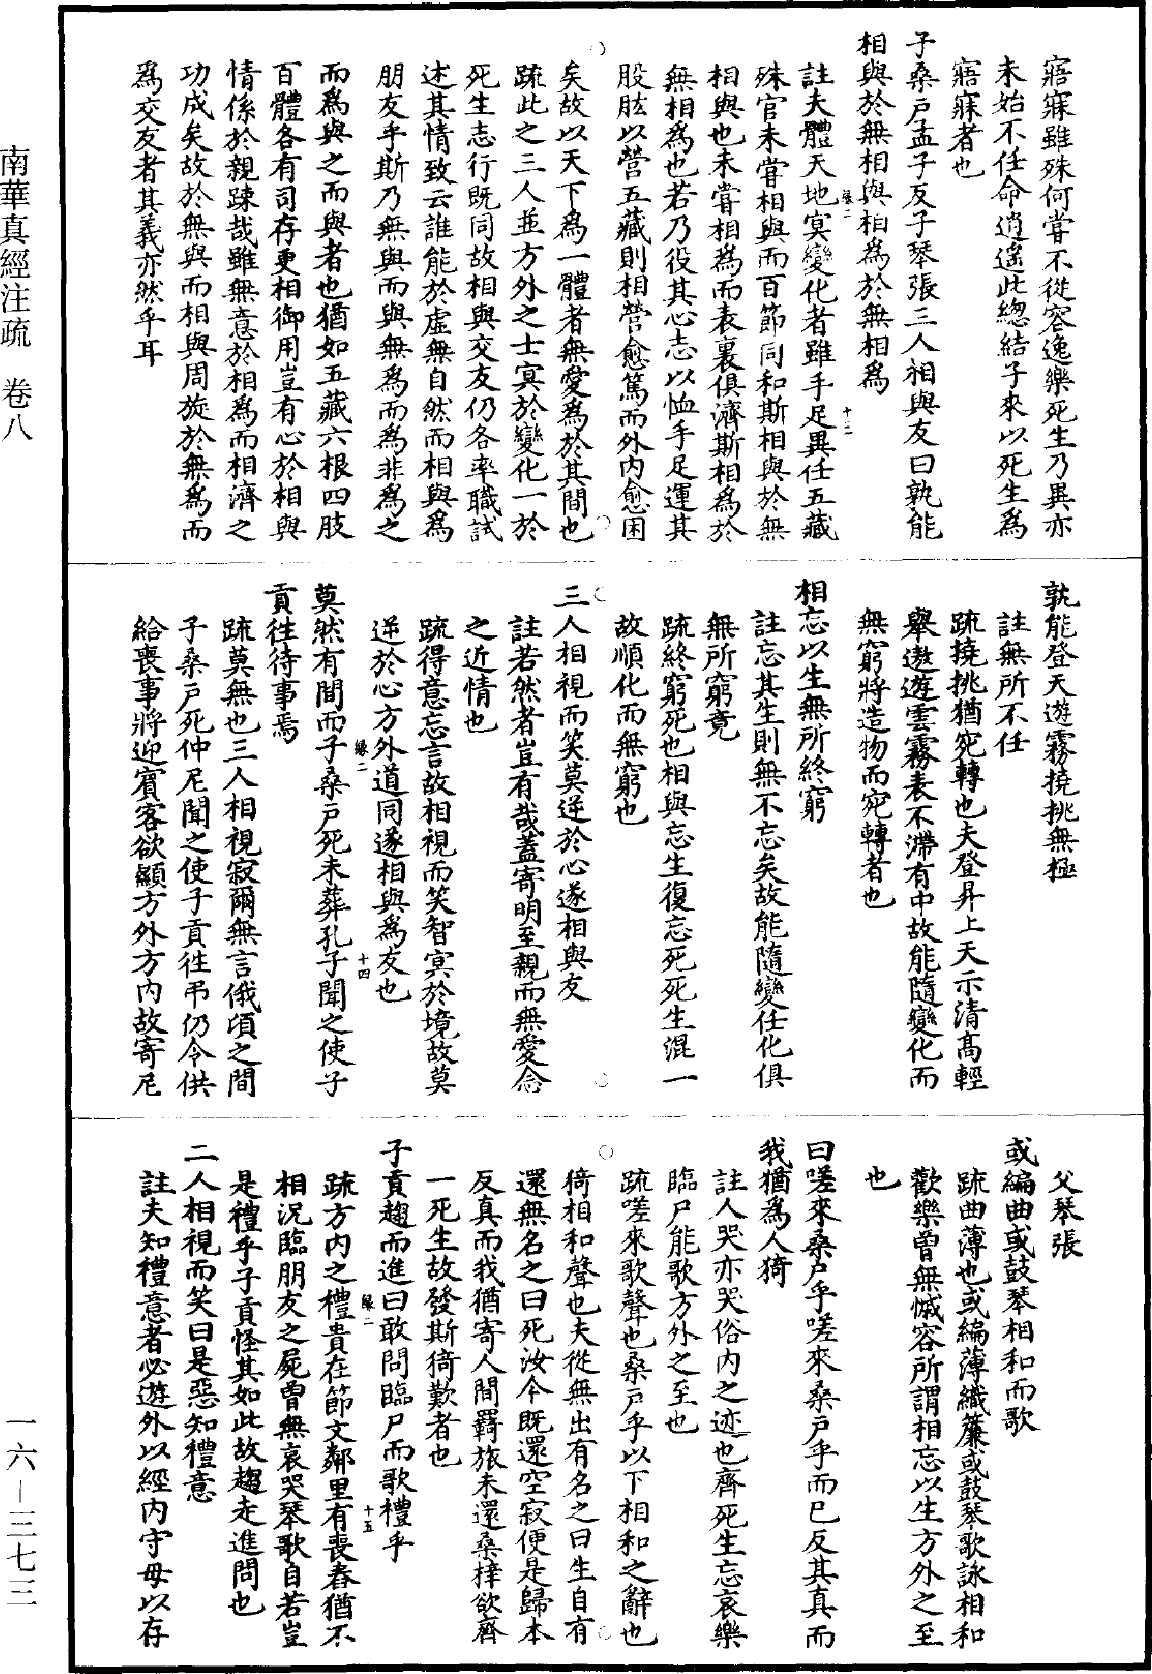 寤寐雖殊何嘗不從容逸樂死生乃異亦
未始不任命逍遙此總結子來以死生爲
寤寐者也
子桑戶孟子反子琴張三人相與友曰孰能
相與於無相與相爲於無相爲
註夫體天地冥變化者雖手足異任五藏
殊官未嘗相與而百節同和斯相與於無
相與也未嘗相爲而表裏俱濟斯相爲於
無相爲也若乃役其心志以恤手足運其
股肱以營五藏則相營愈篤而外内愈困
矣故以天下爲一體者無愛爲於其間也
疏此之三人並方外之士冥於變化一於
死生志行既同故相與交友仍各率職試
述其情致云誰能於虛無自然而相與爲
朋友乎斯乃無與而與無爲而爲非爲之
而爲與之而與者也猶如五藏六根四肢
百體各有司存更相御用豈有心於相與
情係於親踈哉雖無意於相爲而相濟之
功成矣故於無與而相與周旋於無爲而
爲交友者其義亦然乎耳
孰能登天遊霧撓挑無極
註無所不任
疏撓挑猶宛轉也夫登昇上天示清高輕
舉遨遊雲霧表不滯有中故能隨變化而
無窮將造物而宛轉者也
相忘以生無所終窮
註忘其生則無不忘矣故能隨變任化俱
無所窮竟
疏終窮死也相與忘生復忘死死生混一
故順化而無窮也
三人相視而笑莫逆於心遂相與友
註若然者豈有哉蓋寄明至親而無愛念
之近情也
疏得意忘言故相視而笑智冥於境故莫
逆於心方外道同遂相與爲友也
莫然有間而子桑戶死未葬孔子聞之使子
貢往待事焉
疏莫無也三人相視寂爾無言俄頃之間
子桑戶死仲尼聞之使子貢往弔仍令供
給喪事將迎賓客欲顯方外方内故寄尼
父琴張
或編曲或鼓琴相和而歌
疏曲薄也或編薄織簾或鼓琴歌詠相和
歡樂曾無慽容所謂相忘以生方外之至
也
曰嗟來桑戶乎嗟來桑戶乎而已反其真而
我猶爲人猗
註人哭亦哭俗内之迹也齊死生忘哀樂
臨尸能歌方外之至也
疏嗟來歌聲也桑戶乎以下相和之辭也
猗相和聲也夫從無出有名之曰生自有
還無名之曰死汝今既還空寂便是歸本
反真而我猶寄人間羇旅未還桑梓欲齊
一死生故發斯猗歎者也
子貢趨而進曰敢問臨尸而歌禮乎
疏方内之禮貴在節文鄰里有喪舂猶不
相況臨朋友之屍曾無哀哭琴歌自若豈
是禮乎子貢怪其如此故趨走進問也
二人相視而笑曰是惡知禮意
註夫知禮意者必遊外以經内守母以存
南華真經注疏 卷八
一六—三七三